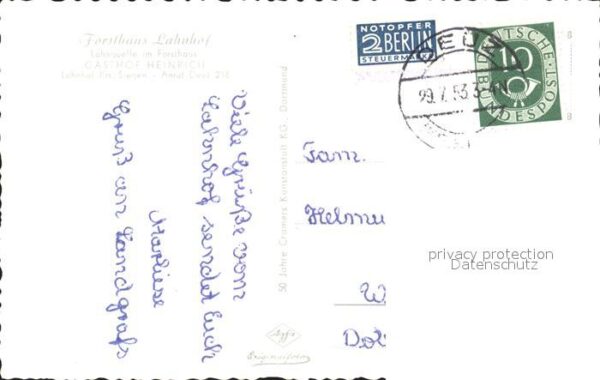 Forsthaus Lahnhof
Lahnquelle im Forsthaus
GASTHOF HEINRICH
Lahnhof Krs. Siegen - Amt Deuz 218
Viele Grüße vom
Lahnhof sendet Euch
Marliese
Gruß an Landgrafs
50 Jahre Cramers Kunstanstalt KG., Dortmund
Agfa
Originalfoto
NOTOPFER
2 BERLIN
STEUERMARKE
DEUZ
29.7.53
DEUTSCHE
BUNDESPOST
10
Fam.
Helmu
W
Do
privacy protection
Datenschutz